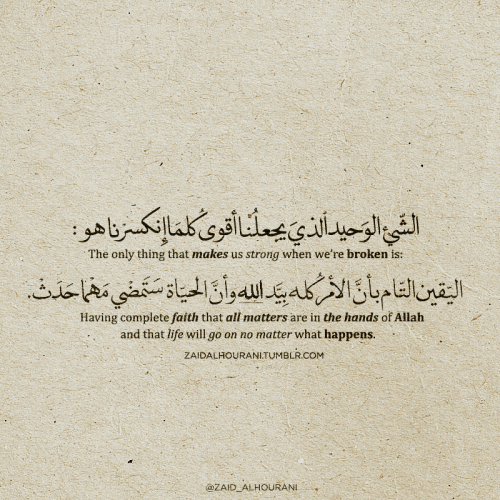 الشّيء الوَحيد الذيَ يجعلُنا أقوى كُلمَا إنكسَرنا هو :
The only thing that makes us strong when we're broken is:
اليَقين التّام بأنَّ الأمرُ كله بِيَد الله وأنَّ الحيَاة سَتَمضي مَهْما حَدَثْ.
Having complete faith that all matters are in the hands of Allah
and that life will go on no matter what happens.
ZAIDALHOURANI.TUMBLR.COM
@ZAID_ALHOURANI